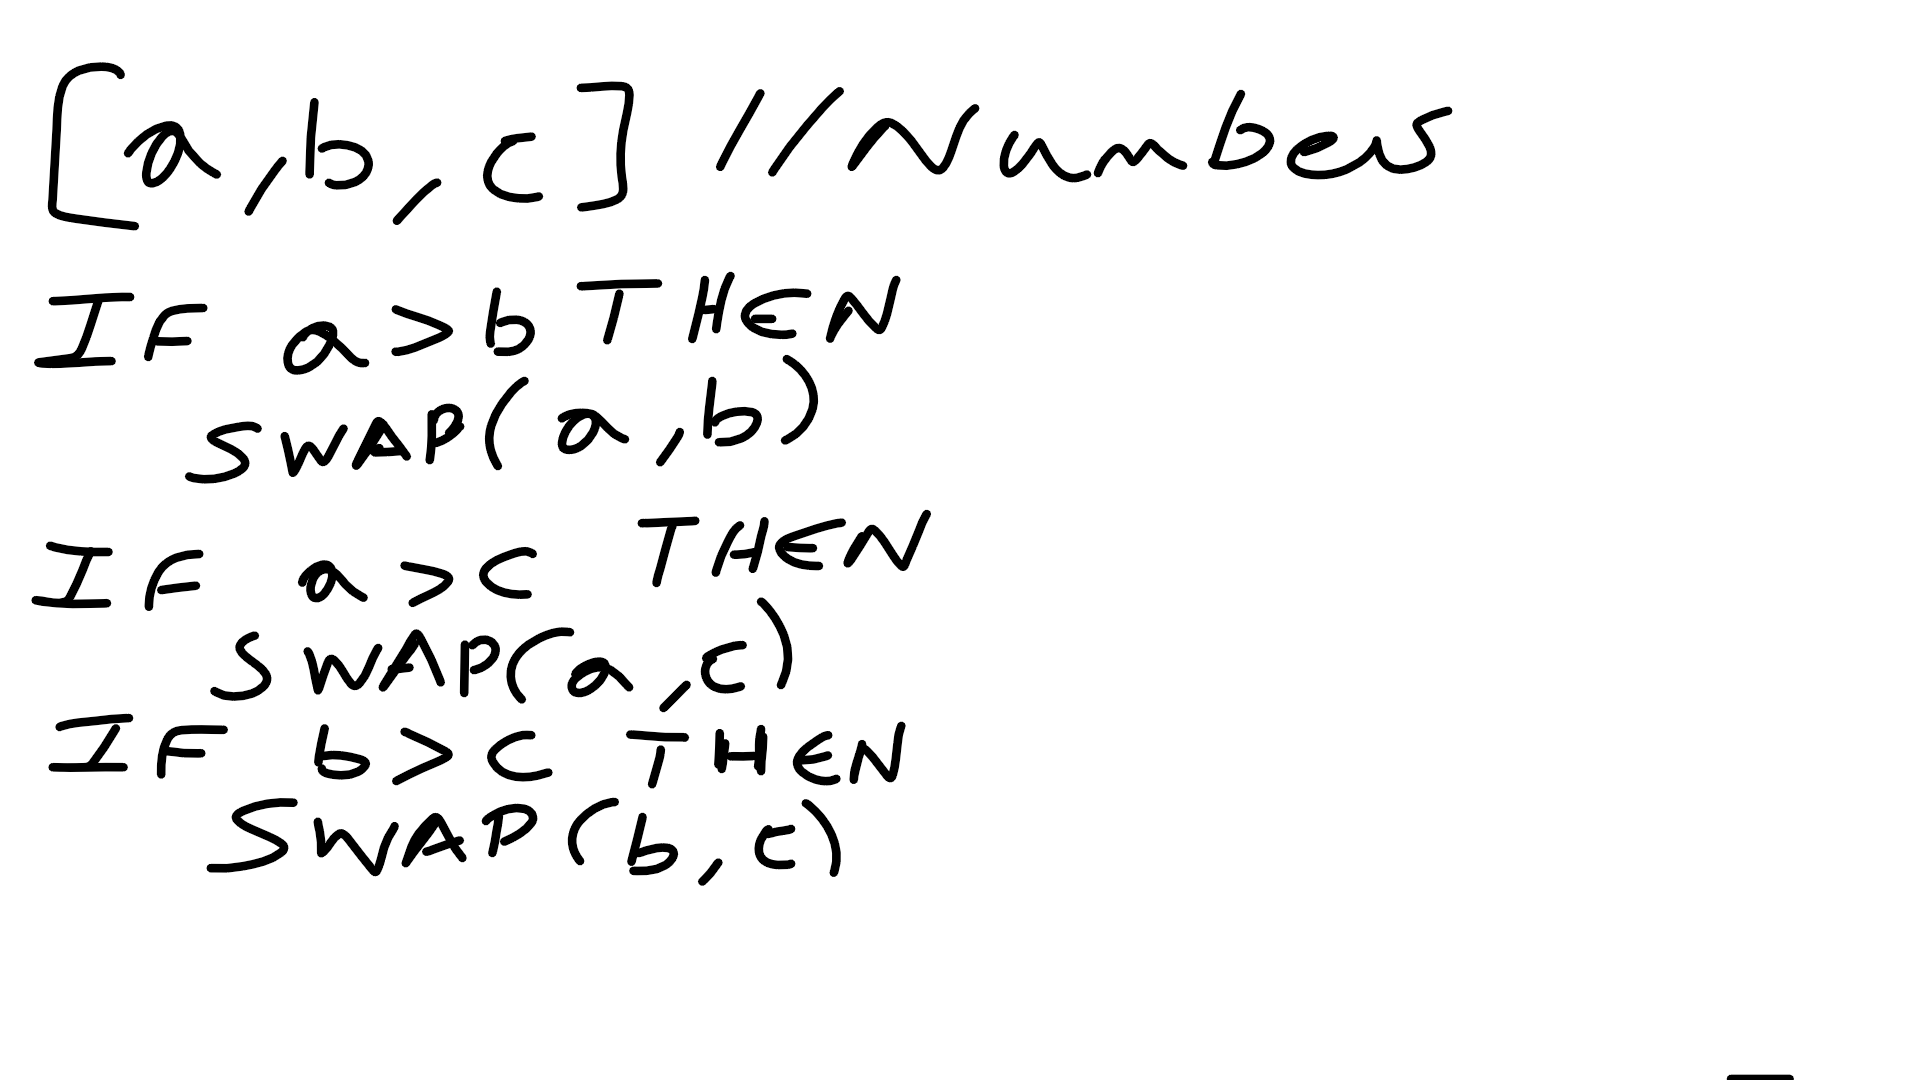 [a,b,c] //Numbers
IF a>b THEN
SWAP(a,b)
IF a>c THEN
SWAP(a,c)
IF b>c THEN
SWAP(b,c)